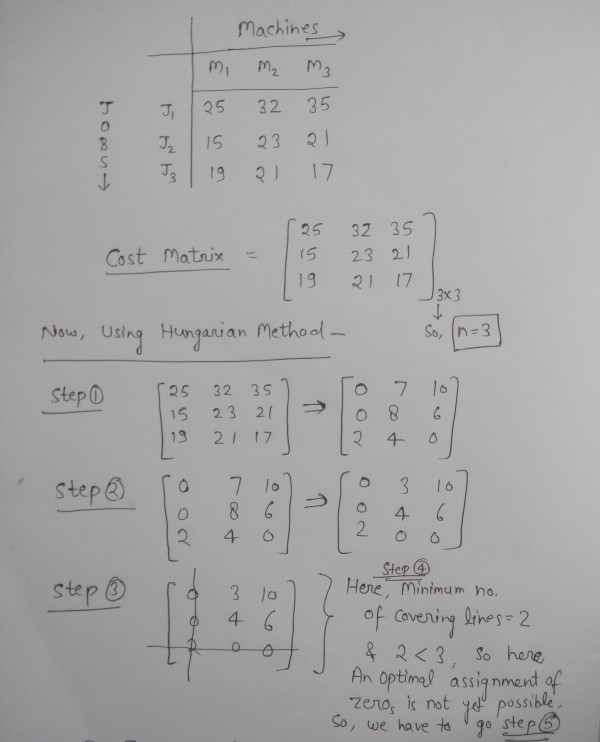 Machines →
M1 M2 M3
J1 25 32 35
J2 15 23 21
J3 19 21 17
JOBS ↓
Cost Matrix = [25 32 35
15 23 21
19 21 17] 3×3
↓
So, n=3
Now, Using Hungarian Method –
Step ①
[25 32 35
15 23 21
19 21 17] ⇒ [0 7 10
0 8 6
2 4 0]
Step ②
[0 7 10
0 8 6
2 4 0] ⇒ [0 3 10
0 4 6
2 0 0]
Step ③
[0 3 10
0 4 6
2 0 0]
Step ④
Here, Minimum no.
of covering lines = 2
& 2 < 3, So here
An optimal assignment of
zeros is not yet possible.
So, we have to go step ⑤